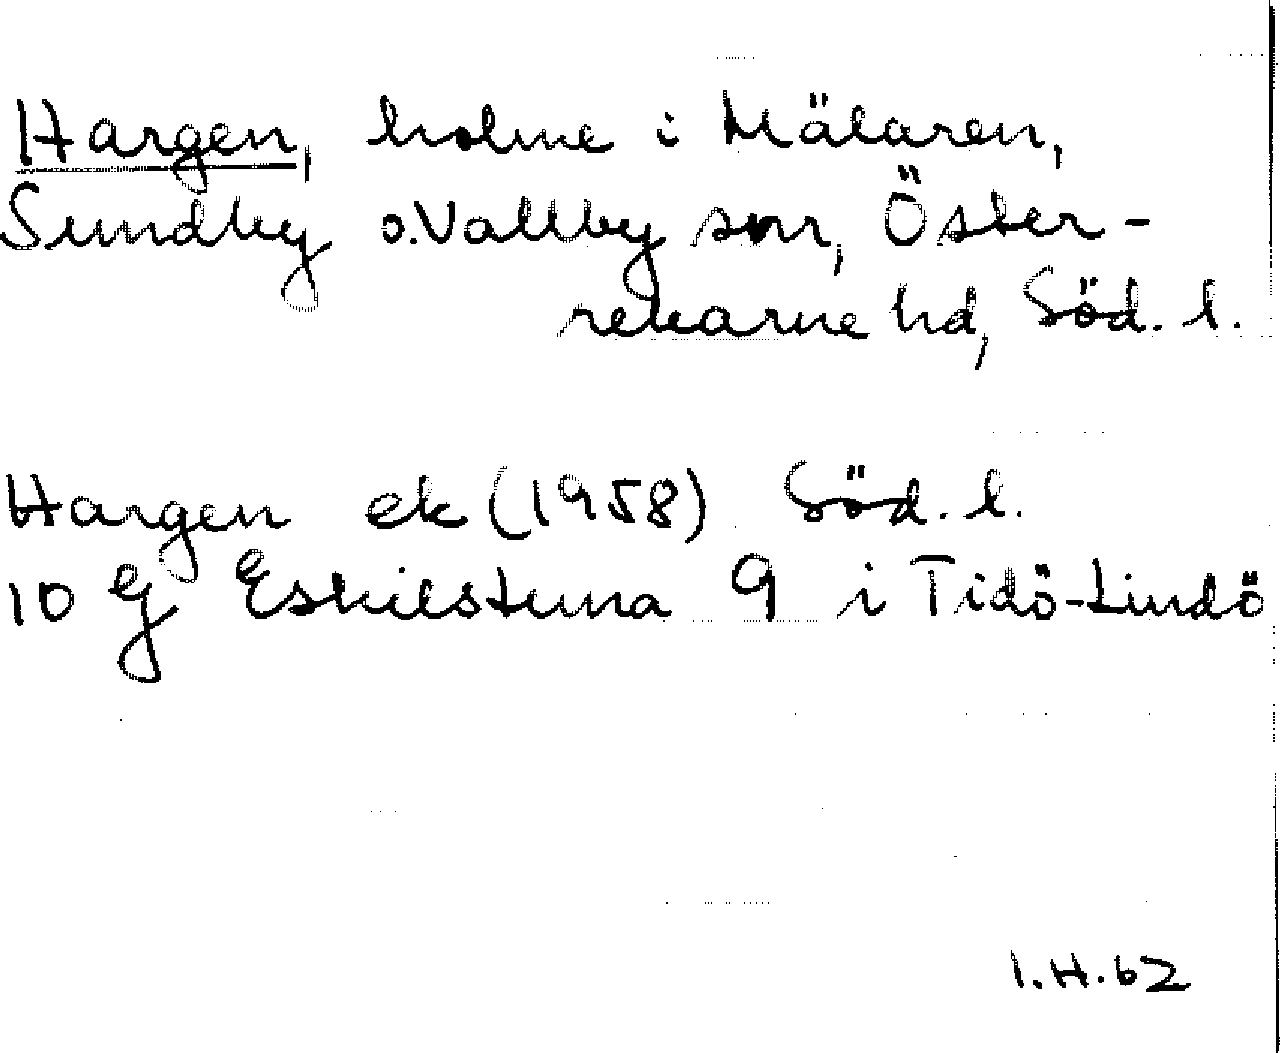 Hargen, holme i Mälaren,
Sundby o. Vallby snr, Öster-
rekarne hd, Söd. l.
Hargen ek (1958) Söd. l.
10 g Eskilstuna 9 i Tidö-Lindö
I.H.62